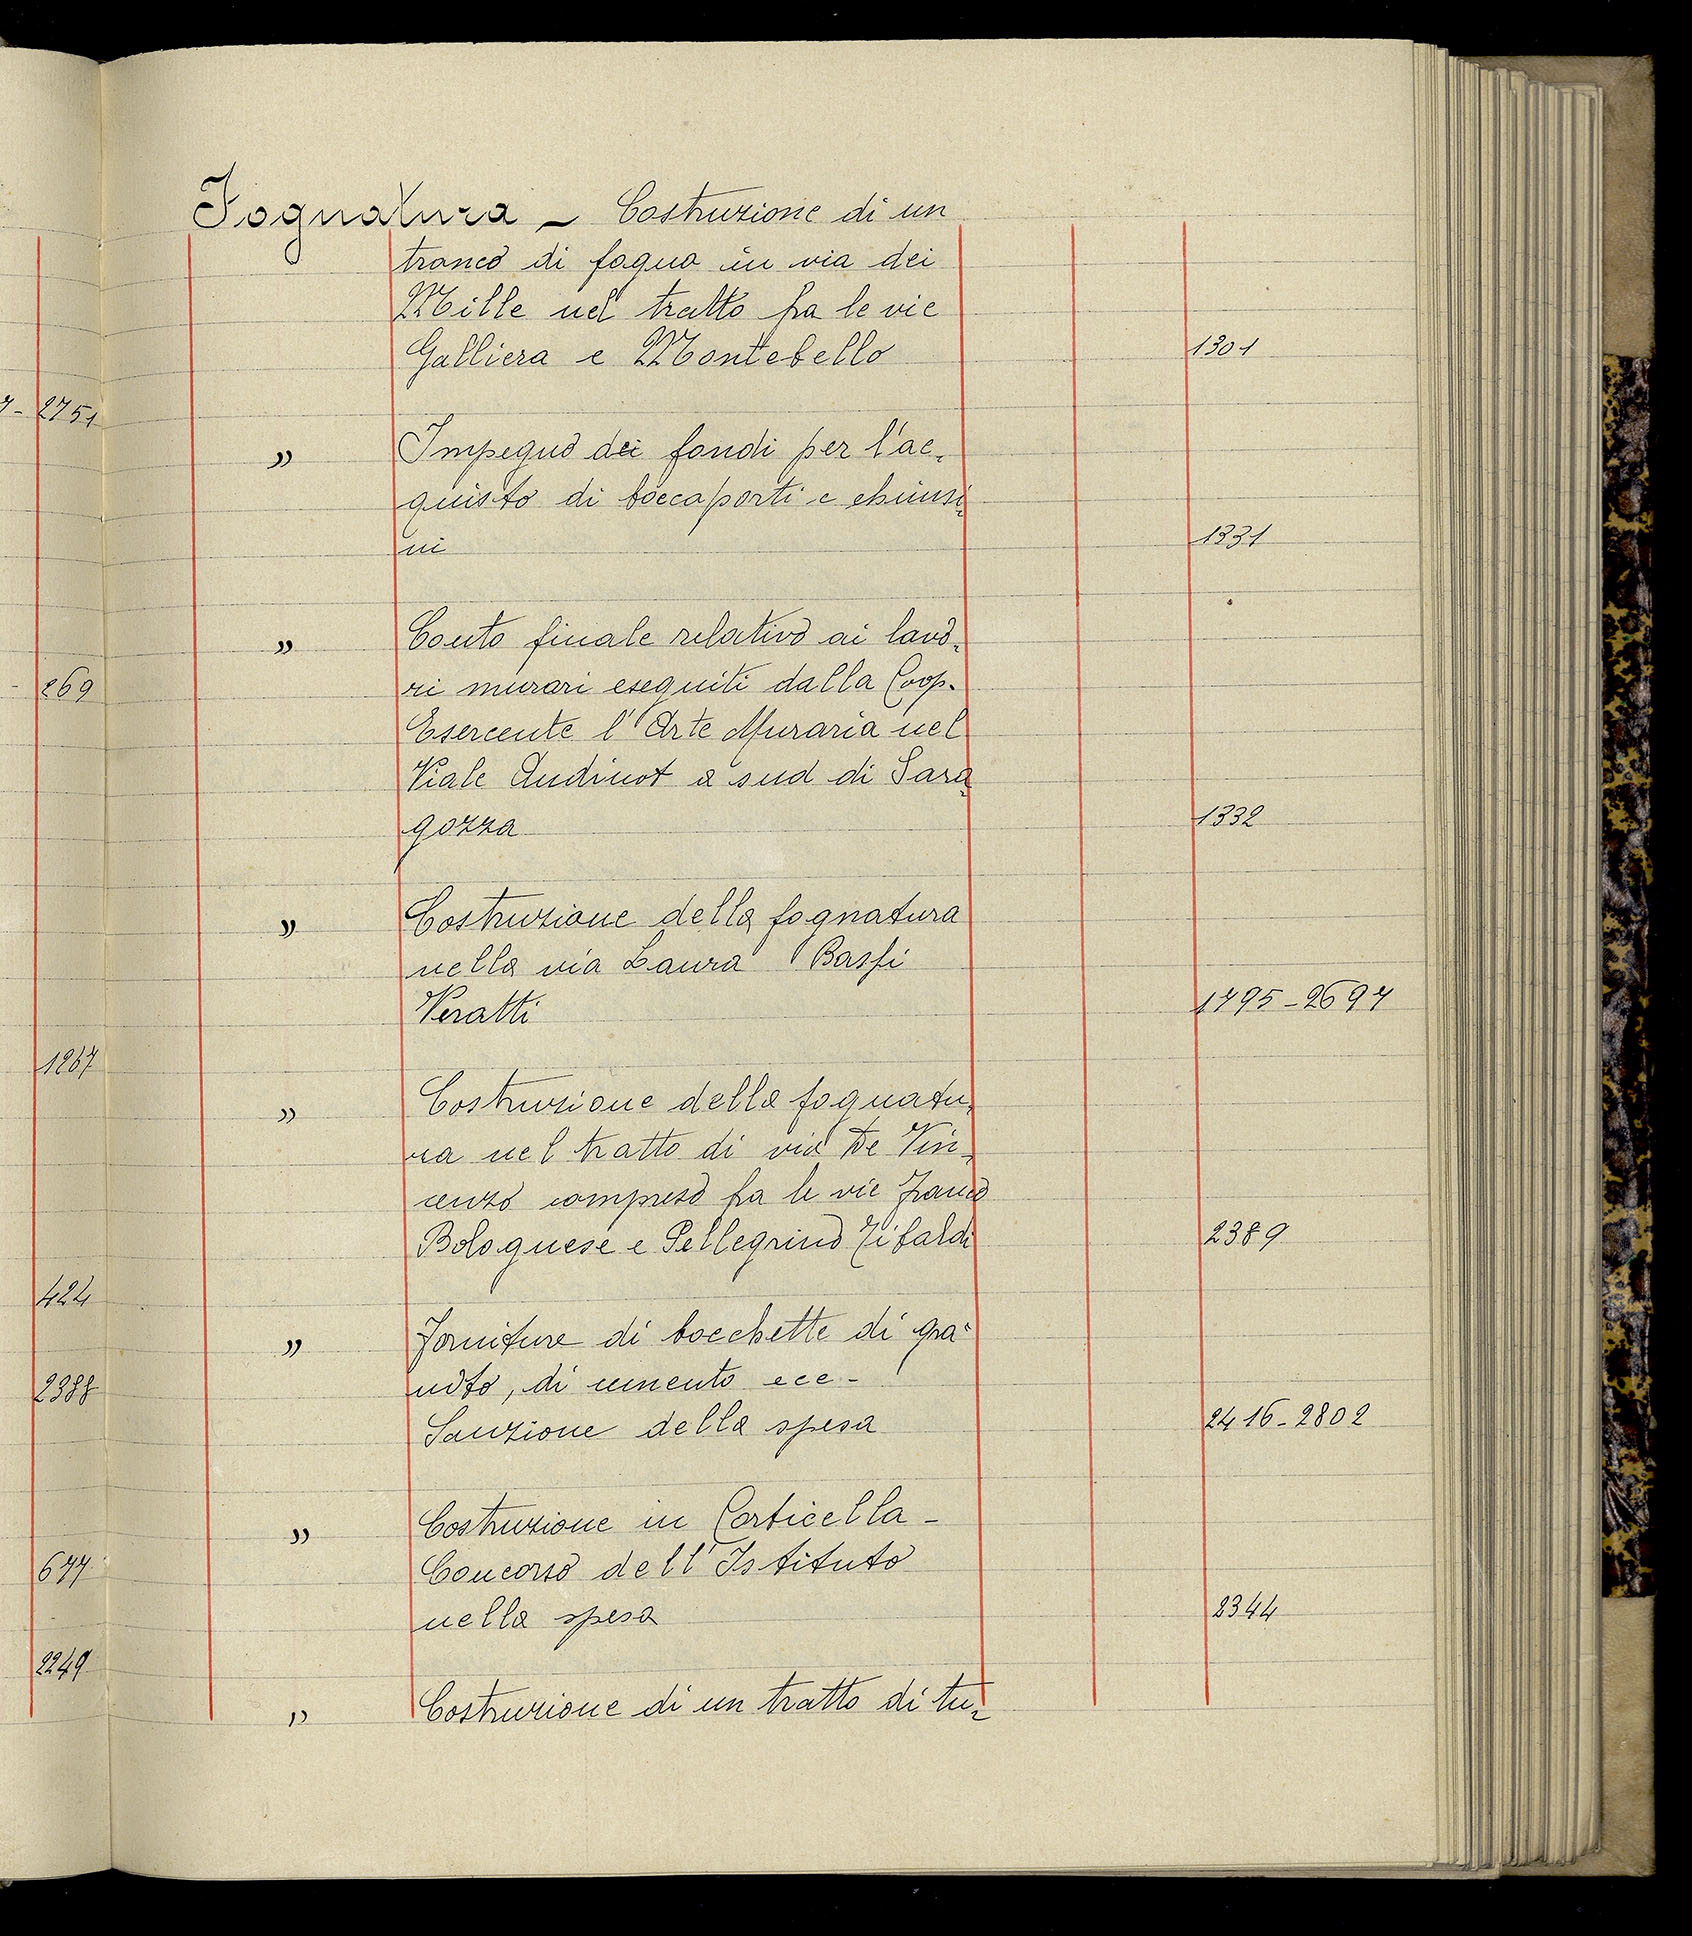 Fognatura - Costruzione di un
tronco di fogna in via dei
Mille nel tratto fra le vie
Galliera e Montebello 1301
7- 2751
" Impegno dei fondi per l'ac-
quisto di boccaporti e chiusi-
ni 1331
" Conto finale relativo ai lavo-
269
ri murari eseguiti dalla Coop.
Esercente l'Arte Muraria nel
Viale Audinot a sud di Sara-
gozza 1332
" Costruzione della fognatura
nella via Laura Bassi
Veratti 1795-2697
1267
" Costruzione della fognatu-
ra nel tratto di via De Vin-
cenzo compreso fra le vie Franco
Bolognese e Pellegrino Tibaldi 2389
424
" Forniture di bocchette di gra-
nito, di cemento ecc-
2388
Sanzione della spesa 2416-2802
" Costruzione in Corticella -
Concorso dell'Istituto
677
nella spesa 2344
2249
" Costruzione di un tratto di tu-